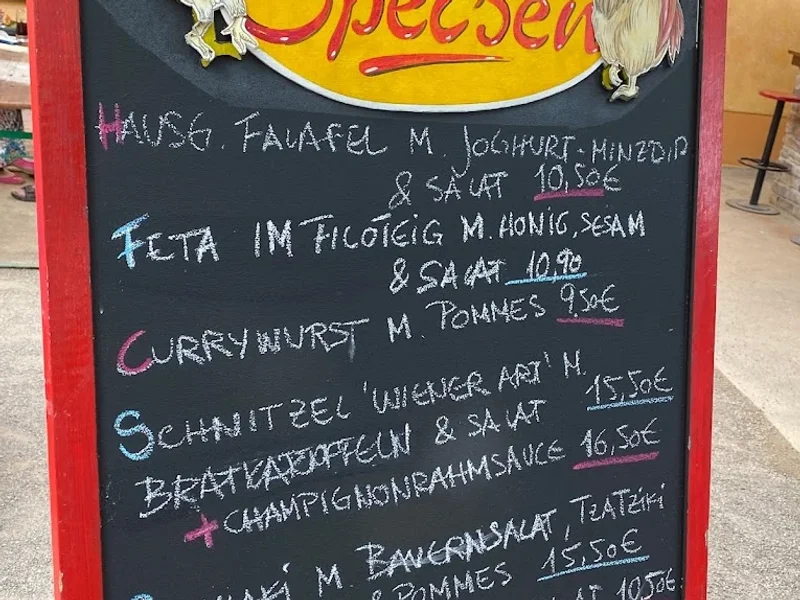 Speisen
HAUSG. FALAFEL M. JOGHURT-MINZDIP
& SALAT 10,50€
FETA IM FILOTEIG M. HONIG, SESAM
& SALAT 10,90
CURRYWURST M. POMMES 9.50€
SCHNITZEL 'WIENER ART' M. 15,50€
BRATKARTOFFELN & SALAT
+ CHAMPIGNONRAHMSAUCE 16,50€
M. BAUERNSALAT, TZATZIKI
& POMMES 15,50€
10,50€